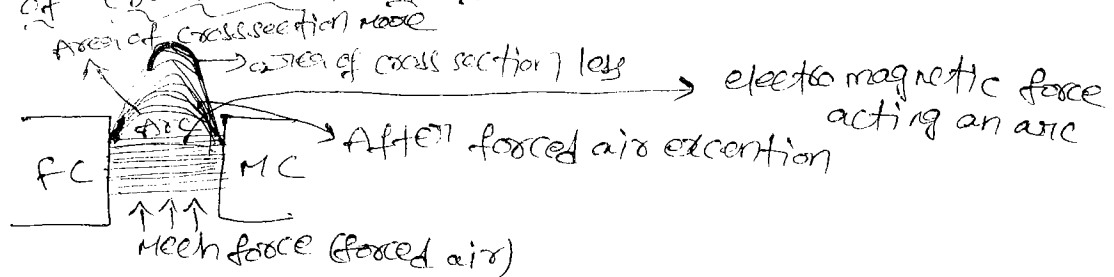 of
Area of crosssection more
area of cross section less
electro magnetic force
acting an arc
Arc
After forced air excention
FC
MC
Mech force (forced air)